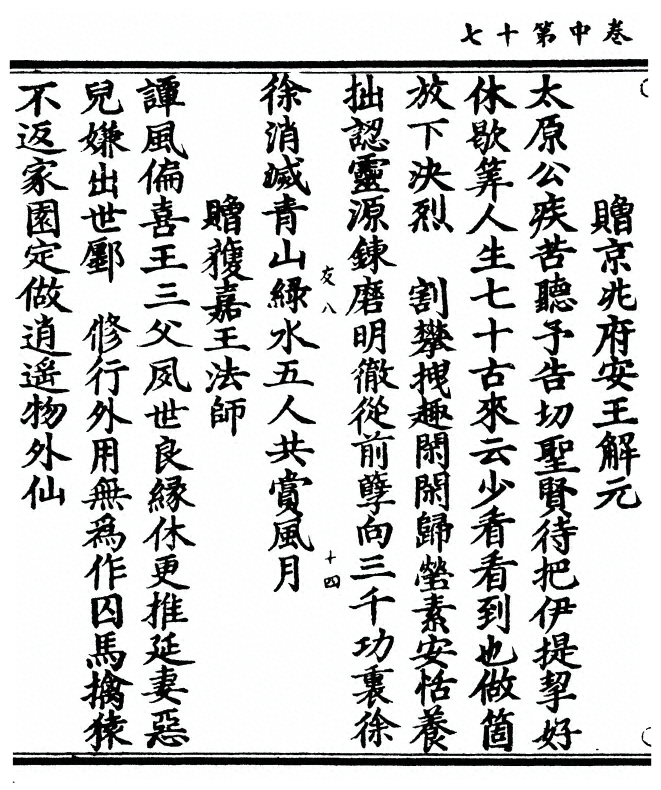 卷中第十七
贈京兆府安王解元
太原公疾苦聽予告切聖賢待把伊提挈好
休歇筭人生七十古來云少看看到也做箇
放下決烈　割攀拽趣閑閑歸塋素安恬養
拙認靈源鍊磨明徹從前孽向三千功裏徐
友八
十四
徐消滅青山綠水五人共賞風月
贈玃嘉王法師
譚風偏喜王三父夙世良緣休更推延妻惡
兒嫌出世鄽　修行外用無為作囚馬擒猿
不返家園定做逍遙物外仙